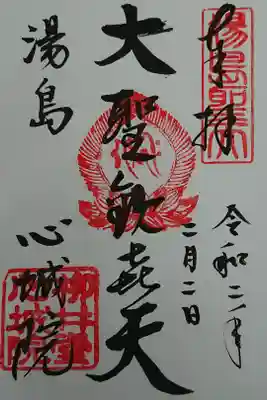 奉拝
湯島聖天
令和二年
二月二日
大聖歓喜天
湯島
心城院
柳井堂
心城院